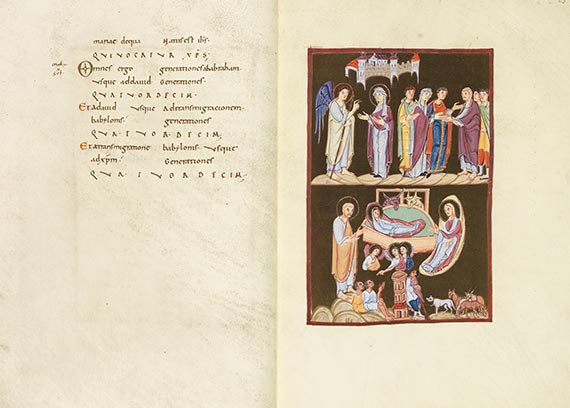 mariae dequa natus est ihs.
QVIVOCATVR XPS,
Omnes ergo generationes ababraham
usque addauid generationes
QVATVORDECIM.
Etadauid usque adtransmigrationem
babylonis. generationes
QVATVORDECIM,
Etatransmigratione babylonis usque
adxpm. generationes
QVATVORDECIM.